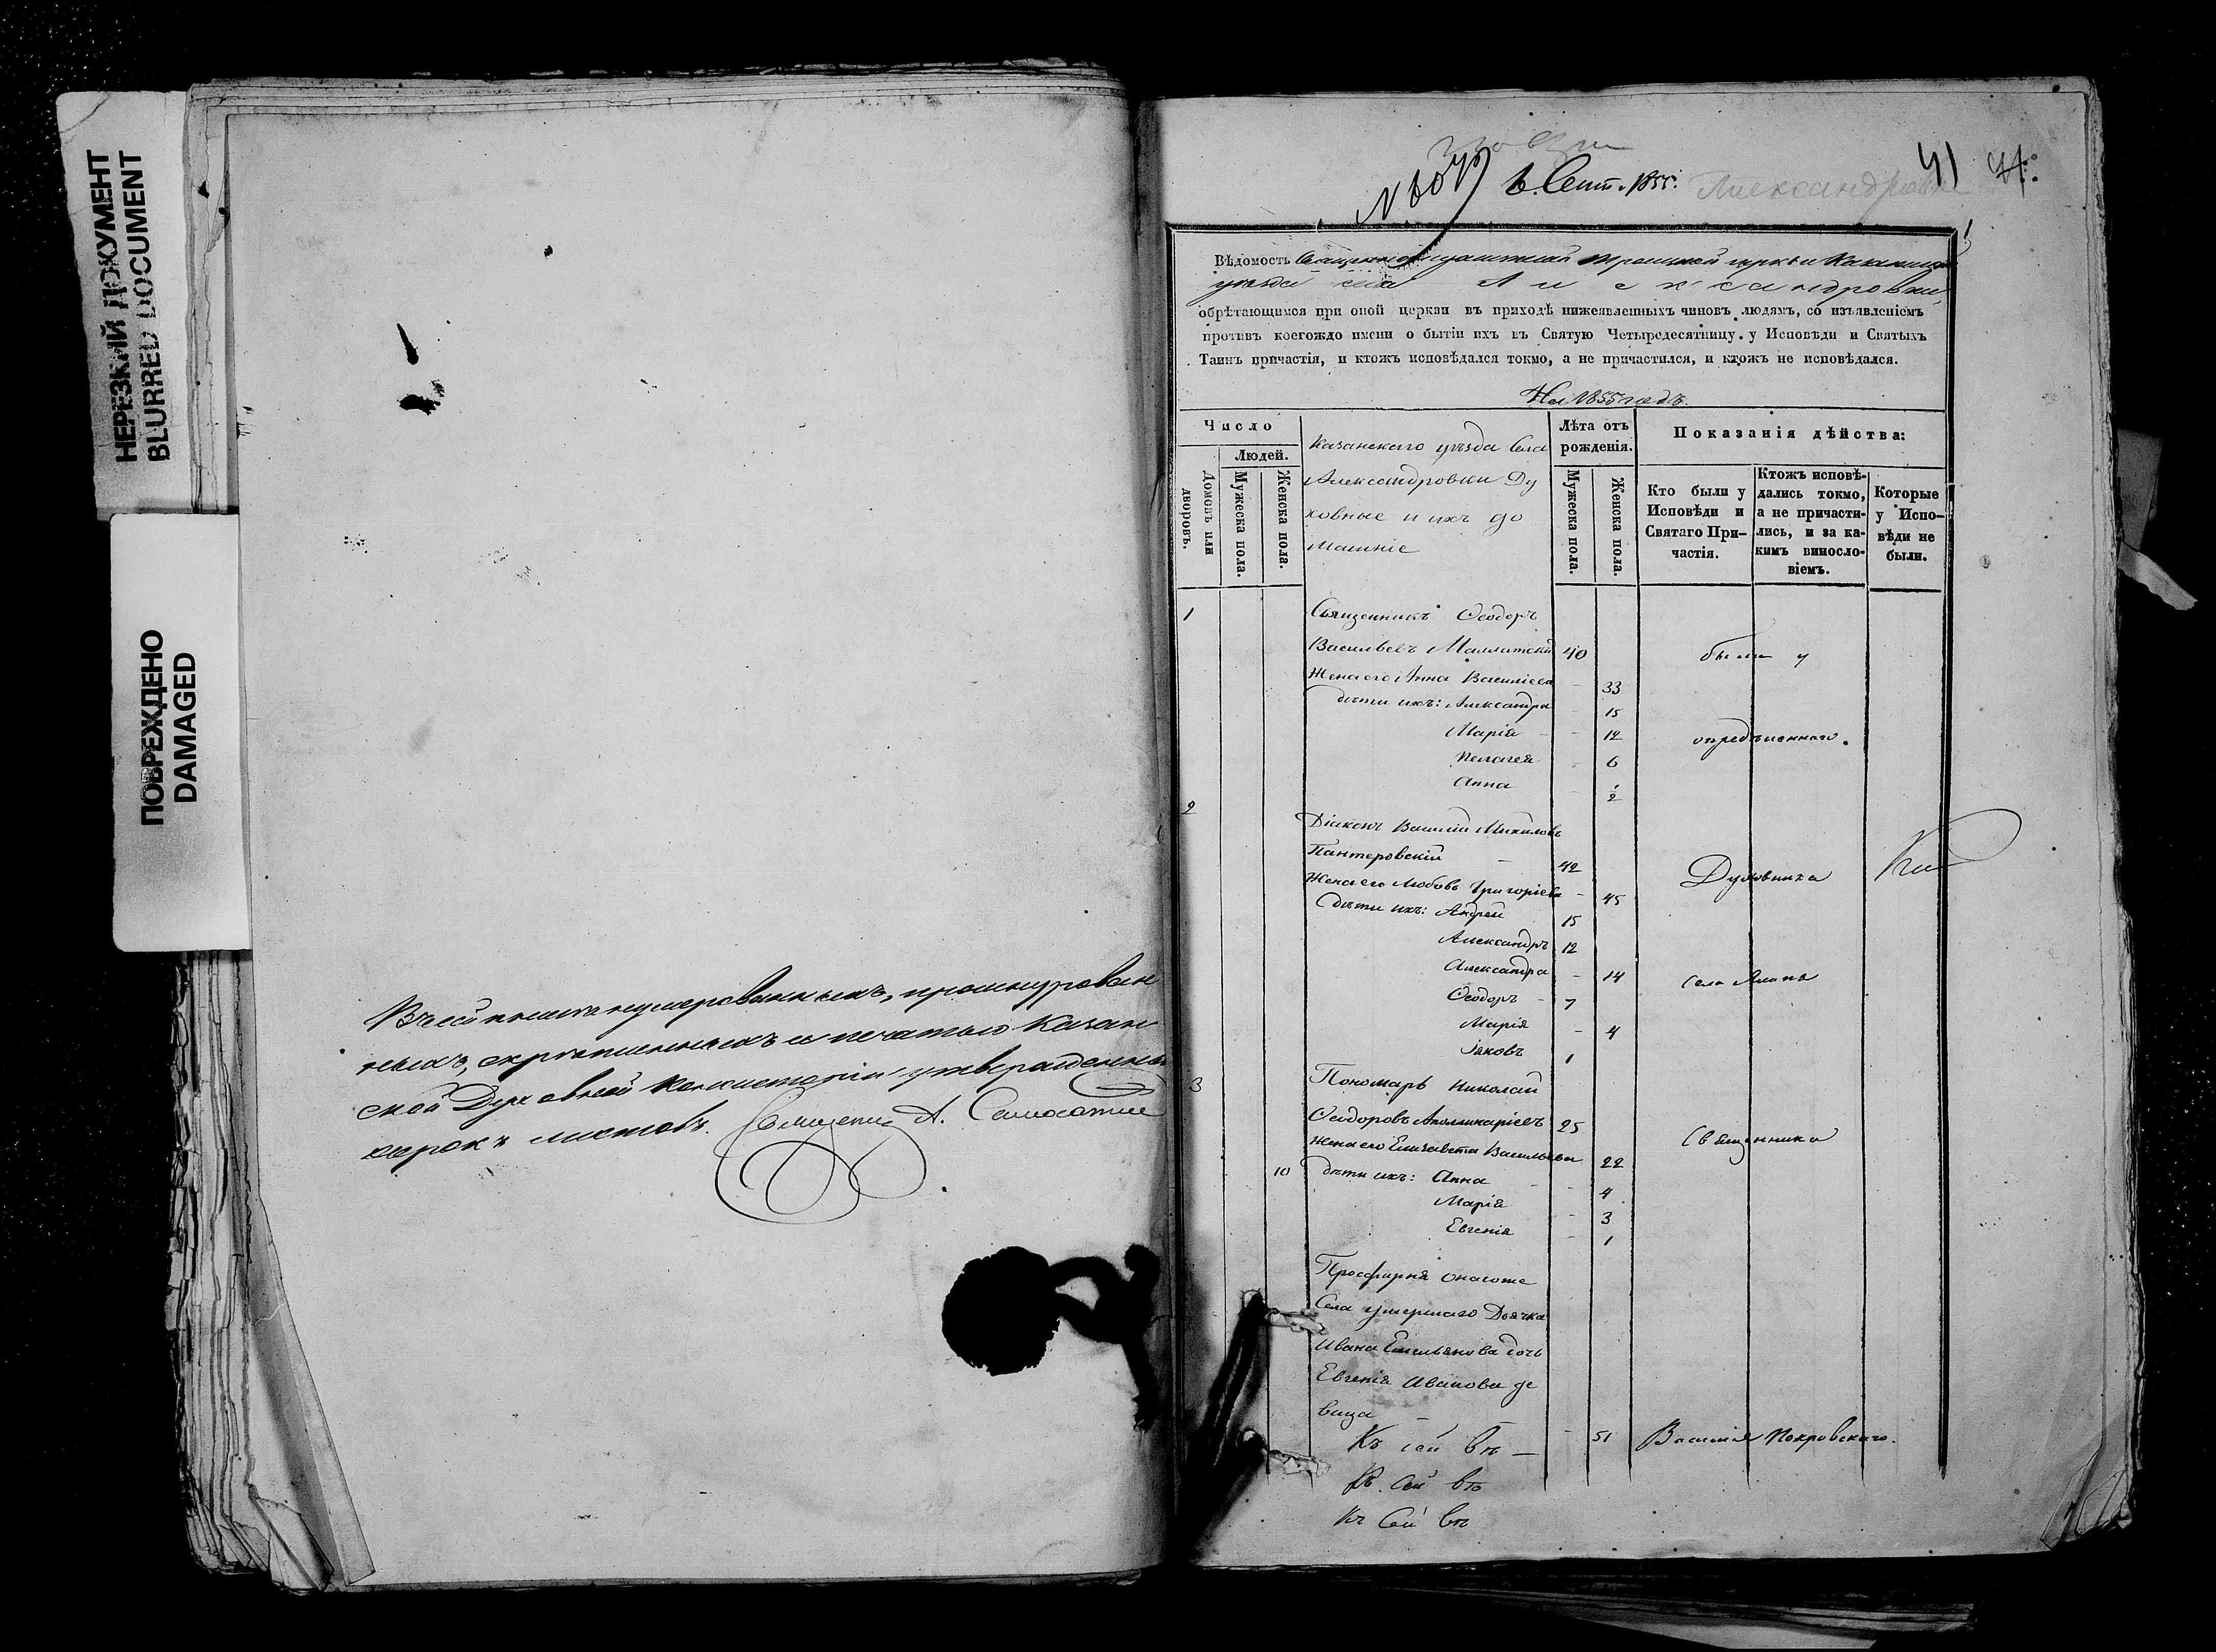 НЕРЕЗКИЙ ДОКУМЕНТ
BLURRED DOCUMENT
ПОВРЕЖДЕНО
DAMAGED
нумерованныхъ, прошнурован
ныхъ, скрѣпленныхъ и печатью Казан
ской Духовной Консисторіи утвержденныхъ
сорокъ листовъ.
6. Сент. 1855. Александровка 41
Вѣдомость Троицкой церкви
уѣзда села Александровки,
обрѣтающимся при оной церкви въ приходѣ нижеявленныхъ чиновъ людямъ, со изъявленіемъ
противъ коегождо имени о бытіи ихъ въ Святую Четыредесятницу у Исповѣди и Святыхъ
Таинъ причастія, и ктожъ исповѣдался токмо, а не причастился, и ктожъ не исповѣдался.
На 1855 годъ.
Число
Людей.
Домовъ или дворовъ.
Мужеска пола.
Женска пола.
Казанскаго уѣзда Села
Александровки Ду
ховные и ихъ до
машніе
Лѣта отъ рожденія.
Мужеска пола.
Женска пола.
Показанія дѣйства:
Кто были у Исповѣди и Святаго При-частія.
Ктожъ исповѣ-дались токмо, а не причасти-лись, и за ка-кимъ винosло-віемъ.
Которые у Испо-вѣди не были.
1 Священникъ Ѳеодоръ
Васильевъ 40 были у
Жена его Анна Васильева - 33
дѣти ихъ: Александра - 15
Марія - 12 опредѣленнаго
Пелагея - 6
Анна - ½
2 Діаконъ Василій Михиловъ
Пантеровскій - 42 Духовника
Жена его Любовь Григоріева - 45
дѣти ихъ: Андрей 15
Александръ 12
Александра - 14 села
Ѳеодоръ - 7
Марія - 4
Іаковъ 1
3 Пономарь Николай
Ѳеодоровъ Аполлинаріевъ 25 Священника
Жена его Елизавета Васильева 22
10 дѣти ихъ: Анна - 4
Марія - 3
Евгенія - 1
Просфирня онагоже
Села умершаго Дьячка
Ивана Емельянова дочь
Евгенія Иванова де
вица - 51 Василія Покровскаго.
Къ сей вѣ
Къ сей вѣ
Къ Сей вѣ